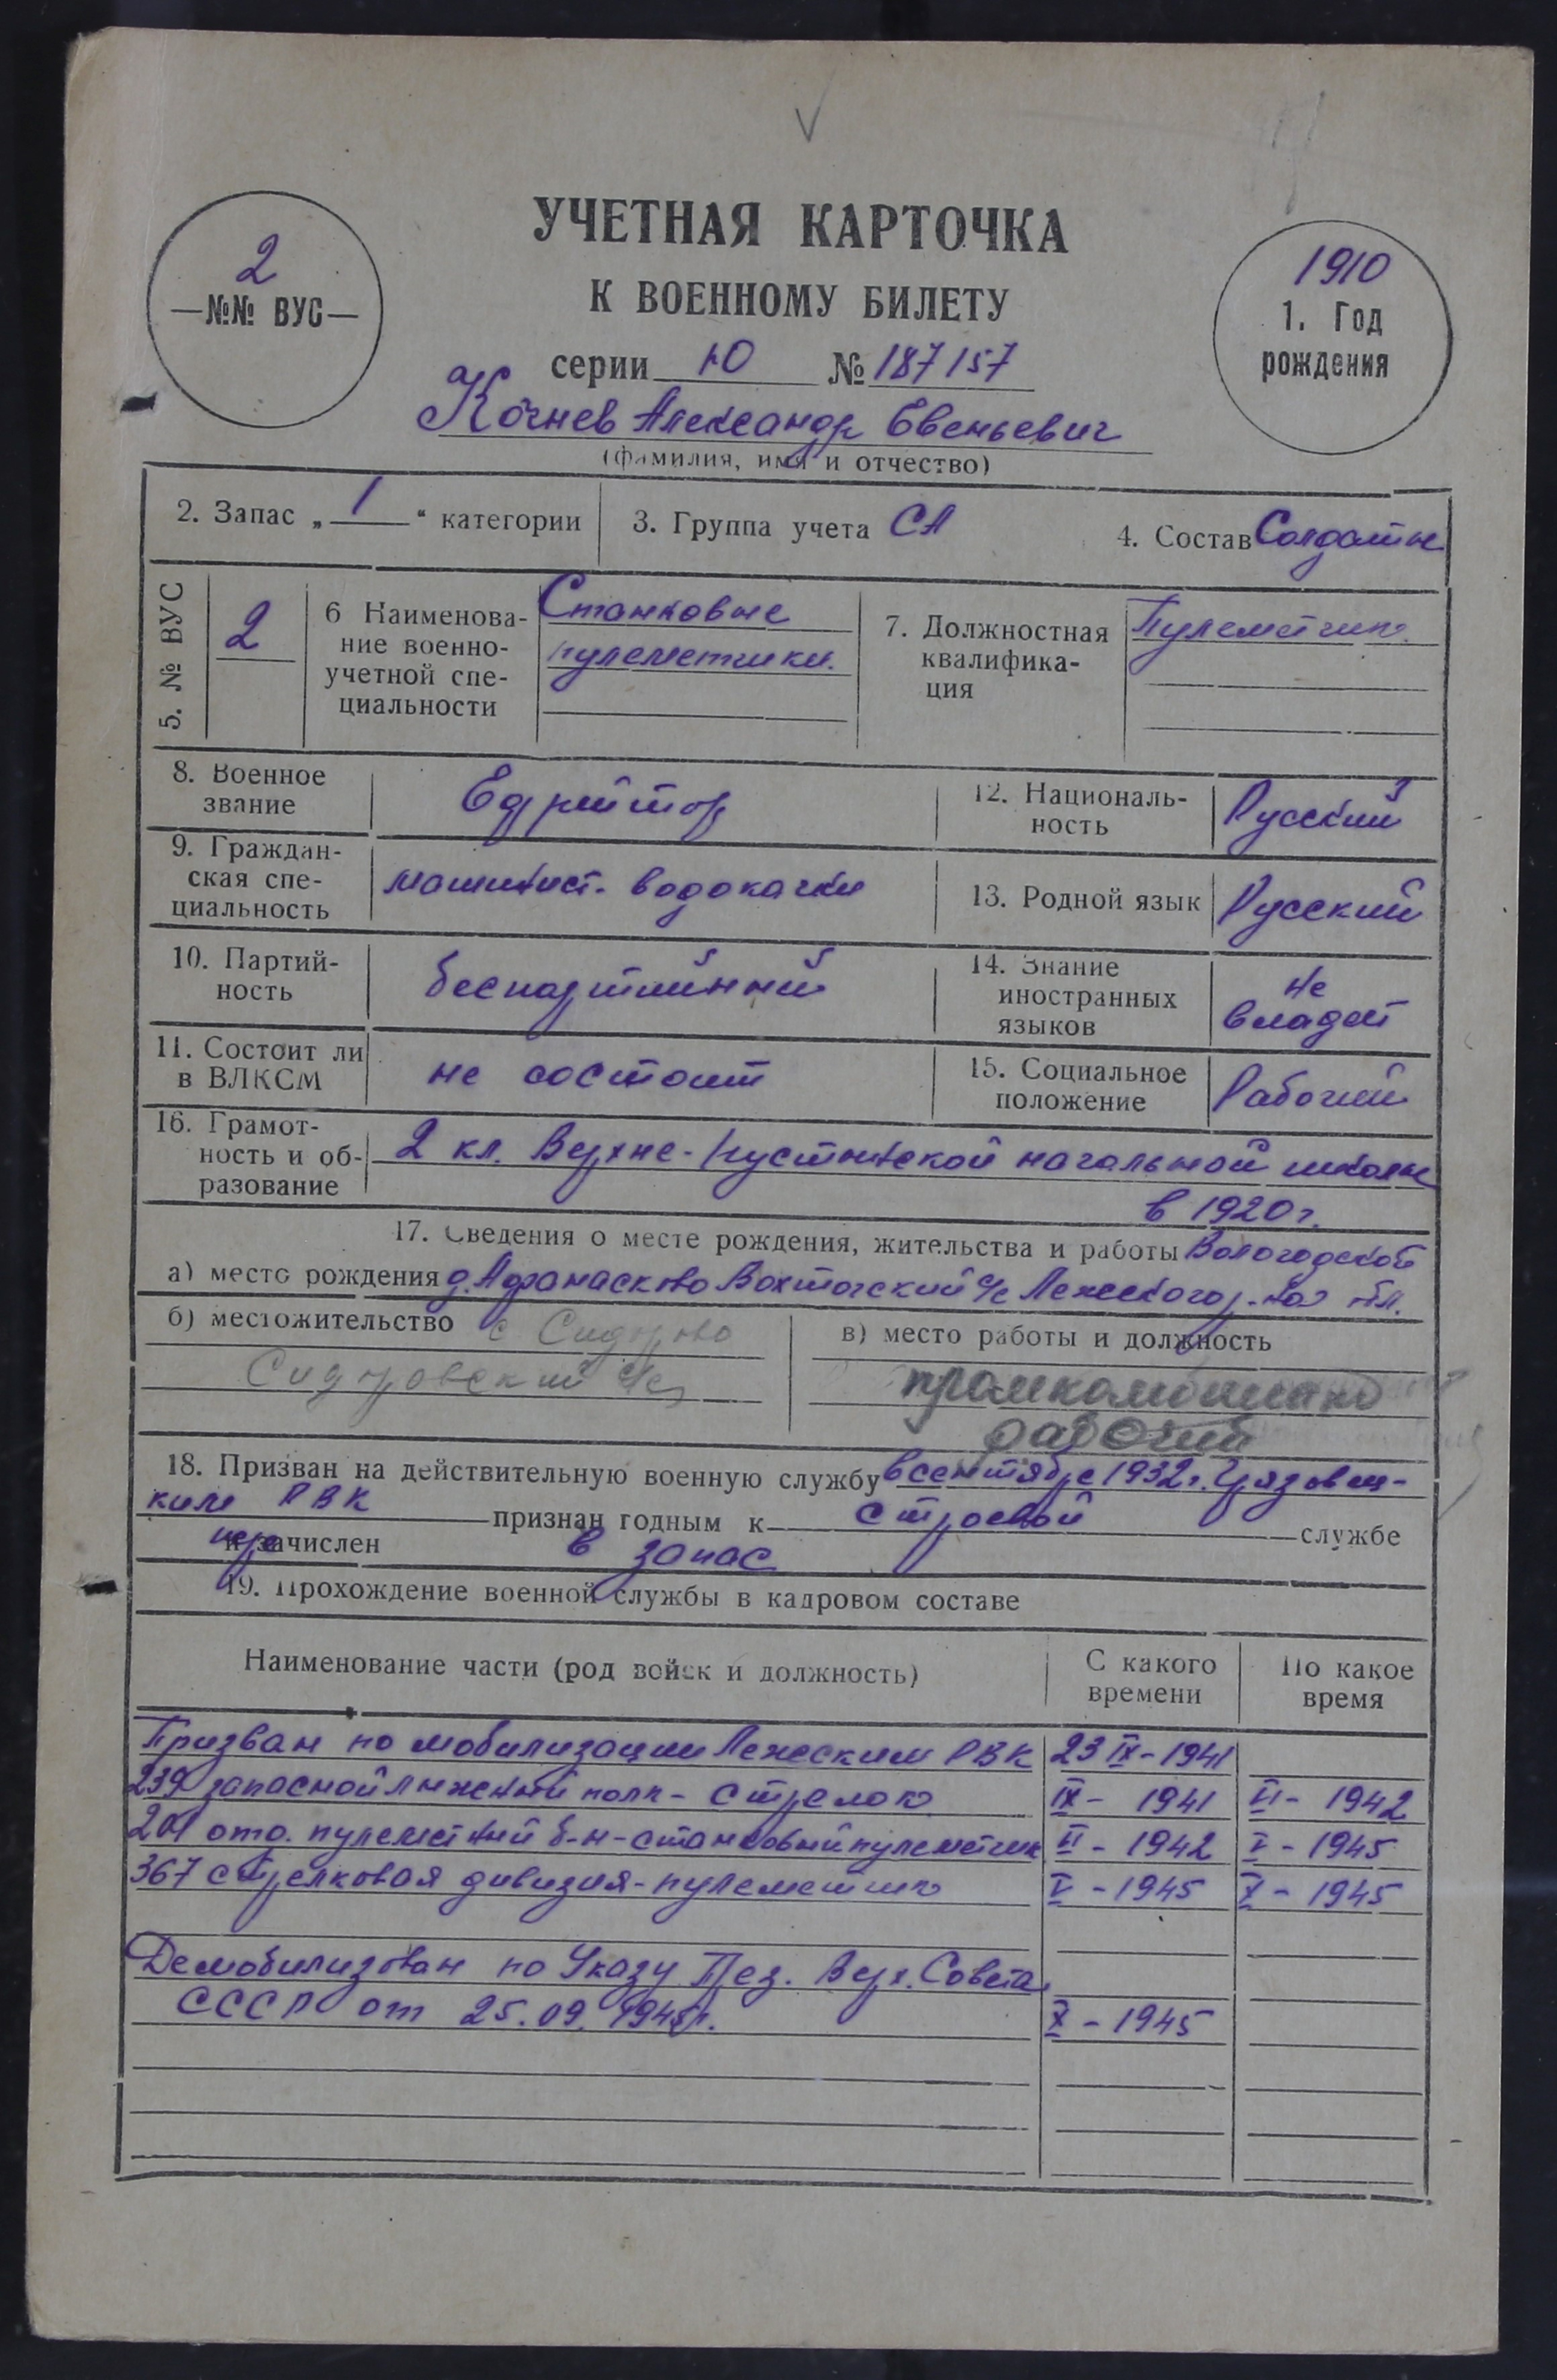 УЧЕТНАЯ КАРТОЧКА
К ВОЕННОМУ БИЛЕТУ
серии Ю № 187157
2
—№№ ВУС—
1910
1. Год
рождения
Кочнев Александр Евеньевич
(фамилия, имя и отчество)
2. Запас „1“ категории
3. Группа учета СА
4. Состав Солдаты
5. № ВУС
2
6 Наименова-
ние военно-
учетной спе-
циальности
Станковые
пулеметчики.
7. Должностная
квалифика-
ция
Пулеметчик
8. Военное
звание
Ефрейтор
12. Националь-
ность
Русский
9. Граждан-
ская спе-
циальность
машинист. водокачки
13. Родной язык
Русский
10. Партий-
ность
беспартийный
14. Знание
иностранных
языков
не
владеет
11. Состоит ли
в ВЛКСМ
не состоит
15. Социальное
положение
Рабочий
16. Грамот-
ность и об-
разование
2 кл. Верхне-Пустынской начальной школы
в 1920г.
17. Сведения о месте рождения, жительства и работы Вологодской
а) место рождения д. Афанасково Вохтогский с/с Лежского р-на обл.
б) местожительство с Сидорово
Сидоровский с/с
в) место работы и должность
промкомбинат
рабочий
18. Призван на действительную военную службу в сентябре 1932г. Грязовец-
ким РВК признан годным к строевой службе
и зачислен в запас
19. Прохождение военной службы в кадровом составе
Наименование части (род войск и должность)
С какого
времени
По какое
время
Призван по мобилизации Лежским РВК 23 IX-1941
239 запасной лыжный полк - стрелок IX- 1941 VI- 1942
201 отд. пулеметный б-н-станковый пулеметчик VI - 1942 V - 1945
367 стрелковая дивизия-пулеметчик V - 1945 X - 1945
Демобилизован по Указу През. Верх. Совета
СССР от 25.09.1945г. X - 1945